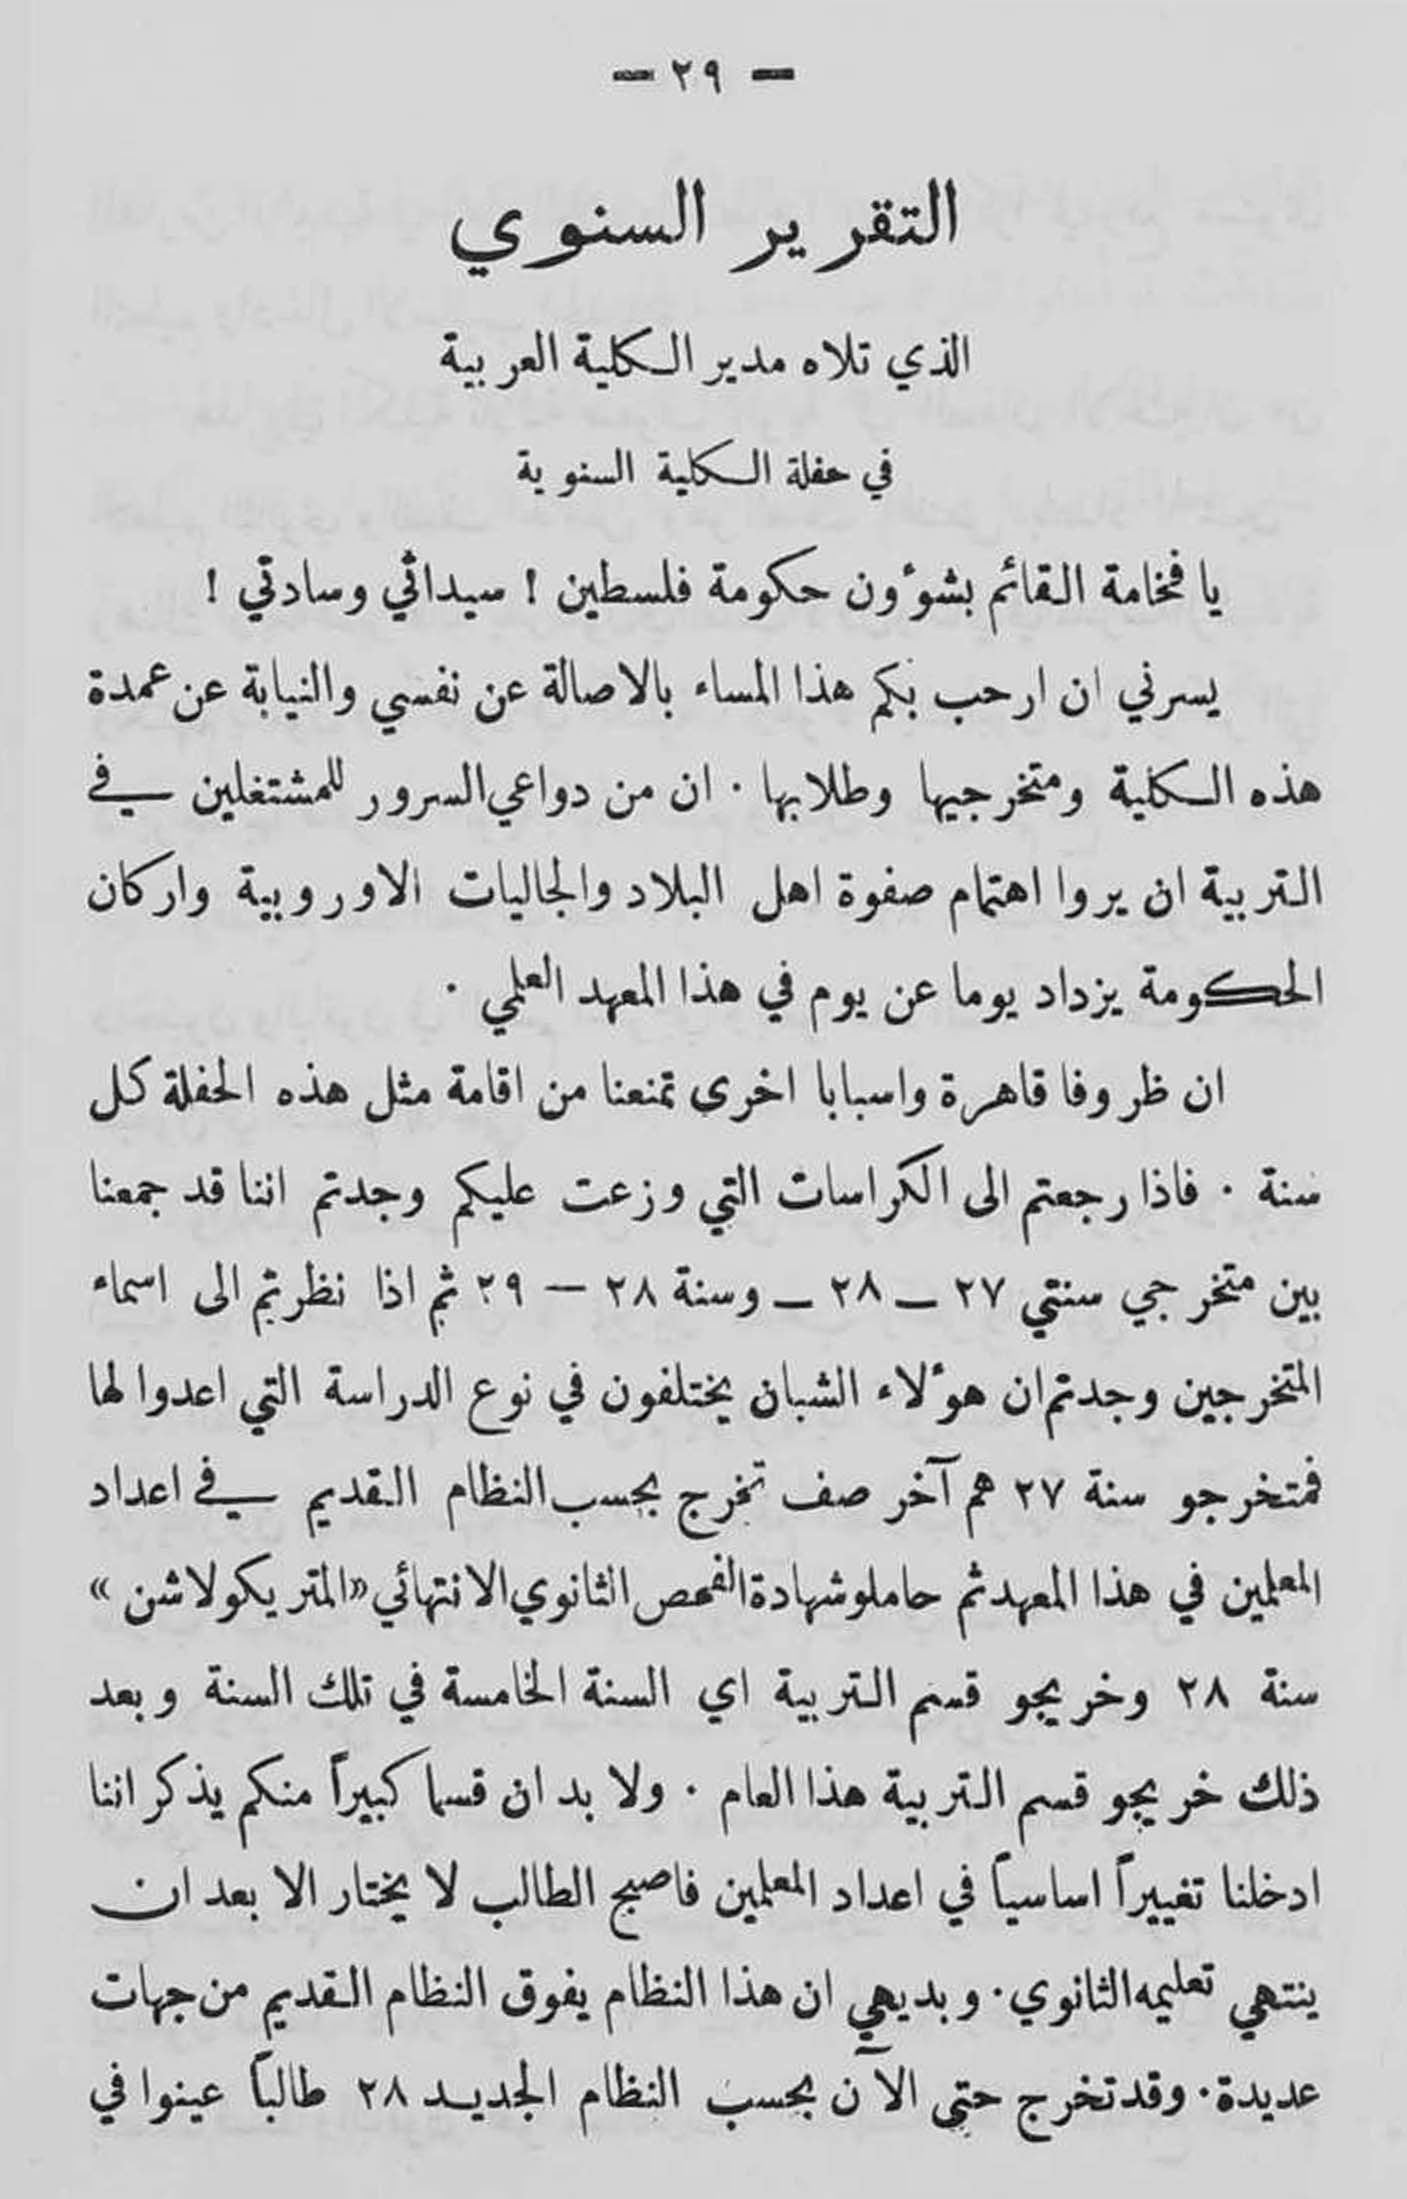 — ٢٩ —
التقرير السنوي
الذي تلاه مدير الكلية العربية
في حفلة الكلية السنوية
يا فخامة القائم بشؤون حكومة فلسطين ! سيداتي وسادتي !
يسرني ان ارحب بكم هذا المساء بالاصالة عن نفسي والنيابة عن عمدة
هذه الكلية ومتخرجيها وطلابها ٠ ان من دواعي السرور للمشتغلين في
التربية ان يروا اهتمام صفوة اهل البلاد والجاليات الاوروبية واركان
الحكومة يزداد يوما عن يوم في هذا المعهد العلمي ٠
ان ظروفا قاهرة واسبابا اخرى تمنعنا من اقامة مثل هذه الحفلة كل
سنة ٠ فاذا رجعتم الى الكراسات التي وزعت عليكم وجدتم اننا قد جمعنا
بين متخرجي سنتي ٢٧ — ٢٨ — وسنة ٢٨ — ٢٩ ثم اذا نظرتم الى اسماء
المتخرجين وجدتم ان هؤلاء الشبان يختلفون في نوع الدراسة التي اعدوا لها
فمتخرجو سنة ٢٧ هم آخر صف تخرج بحسب النظام القديم في اعداد
المعلمين في هذا المعهد ثم حاملو شهادة الفحص الثانوي الانتهائي «المتريكولاشن»
سنة ٢٨ وخريجو قسم التربية اي السنة الخامسة في تلك السنة وبعد
ذلك خريجو قسم التربية هذا العام ٠ ولا بد ان قسما كبيراً منكم يذكر اننا
ادخلنا تغييراً اساسياً في اعداد المعلمين فاصبح الطالب لا يختار الا بعد ان
ينتهي تعليمه الثانوي ٠ وبديهي ان هذا النظام يفوق النظام القديم من جهات
عديدة ٠ وقد تخرج حتى الآن بحسب النظام الجديد ٢٨ طالباً عينوا في